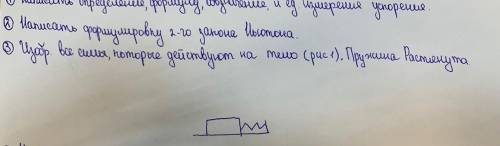 ① Написать определение, формулу, обозначение, и ед измерения ускорение.
② Написать формулировку 2-го закона Ньютона.
③ Изобр. все силы, которые действуют на тело (рис 1). Пружина Растянута